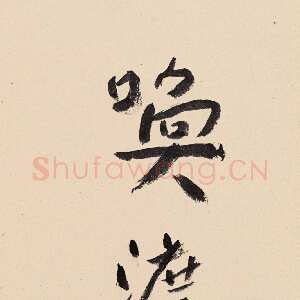 喚
Shufawang.CN